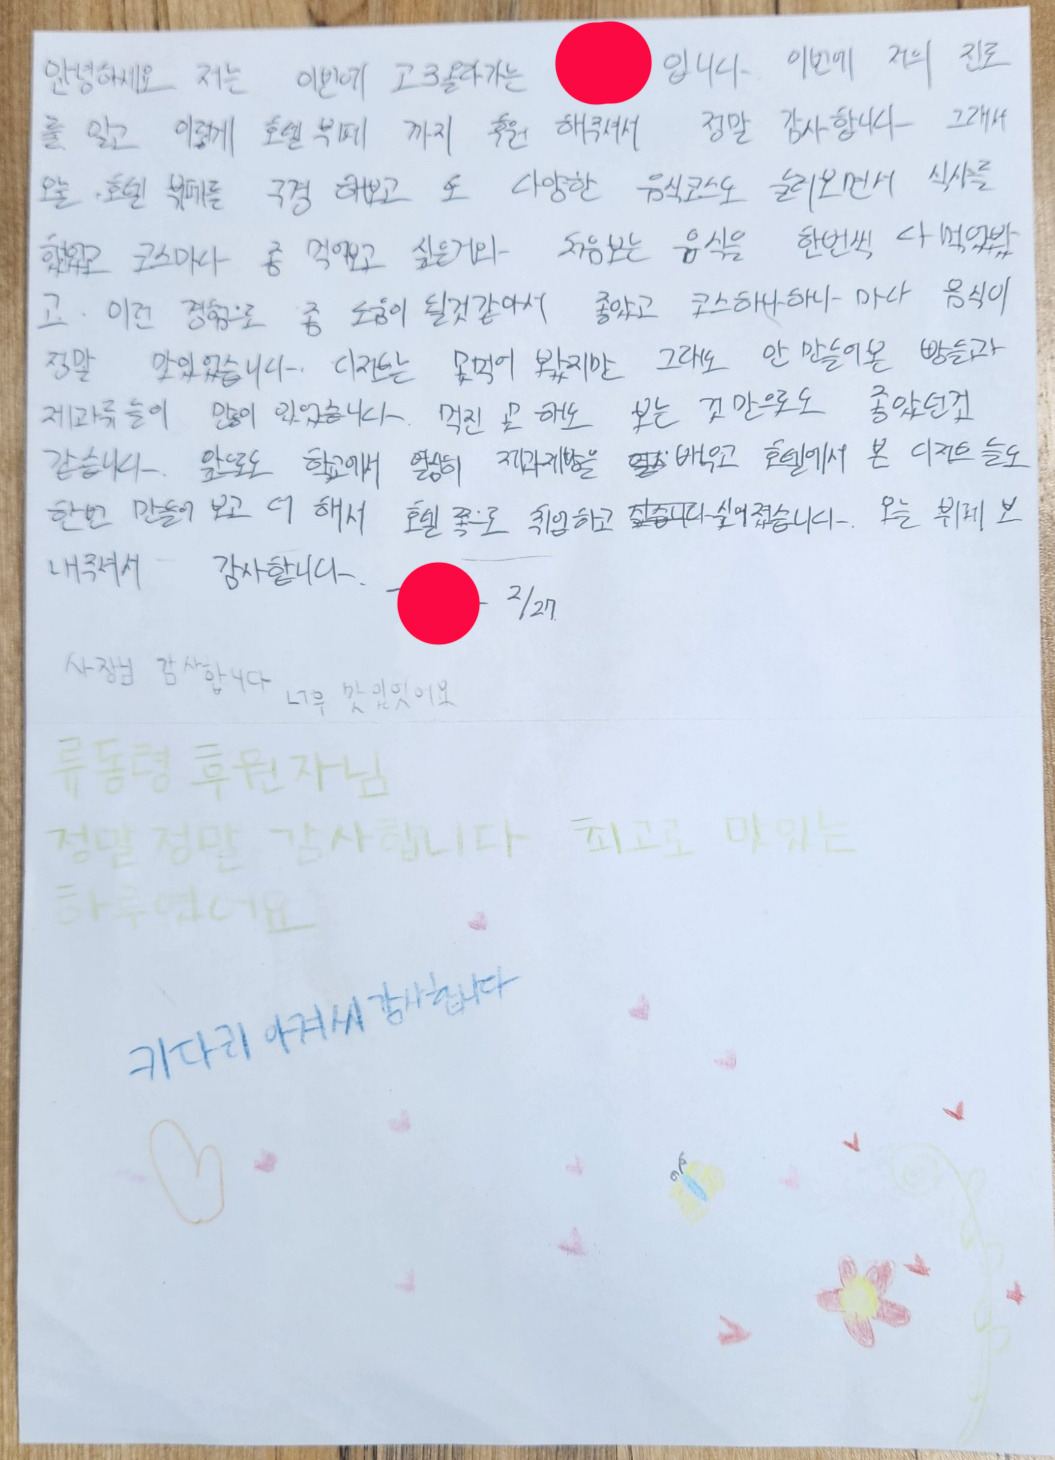 안녕하세요 저는 이번에 고3올라가는 입니다. 이번에 저의 진로
를 알고 이렇게 호텔 뷔페 까지 후원 해주셔서 정말 감사합니다 그래서
오늘 호텔 뷔페를 구경 해보고 또 다양한 음식코스도 놀러보면서 식사를
했었고 코스마다 좀 먹어보고 싶은거와 처음보는 음식을 한번씩 다 먹었봤
고 이런 경험으로 좀 도움이 될것같아서 좋았고 코스하나하나 마다 음식이
정말 맛있었습니다. 디저트는 못먹어 봤지만 그래도 안 만들어본 빵들과
제과류들이 많이 있었습니다. 먹진 못 해도 보는 것 만으로도 좋았던것
같습니다. 앞으로도 학교에서 열심히 제과제빵을 배우고 호텔에서 본 디저트 들도
한번 만들어 보고 더 해서 호텔 쪽으로 취업하고 싶어졌습니다. 오늘 뷔페 보
내주셔서 감사합니다.
2/27
사장님 감사합니다
너무 맛있엇어요
류동령 후원자님
정말정말 감사합니다 최고로 맛있는
하루였어요
키다리 아져씨 감사합니다